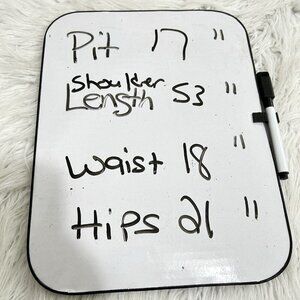 Pit 17 "
Shoulder
Length 53 "
Waist 18 "
Hips 21 "